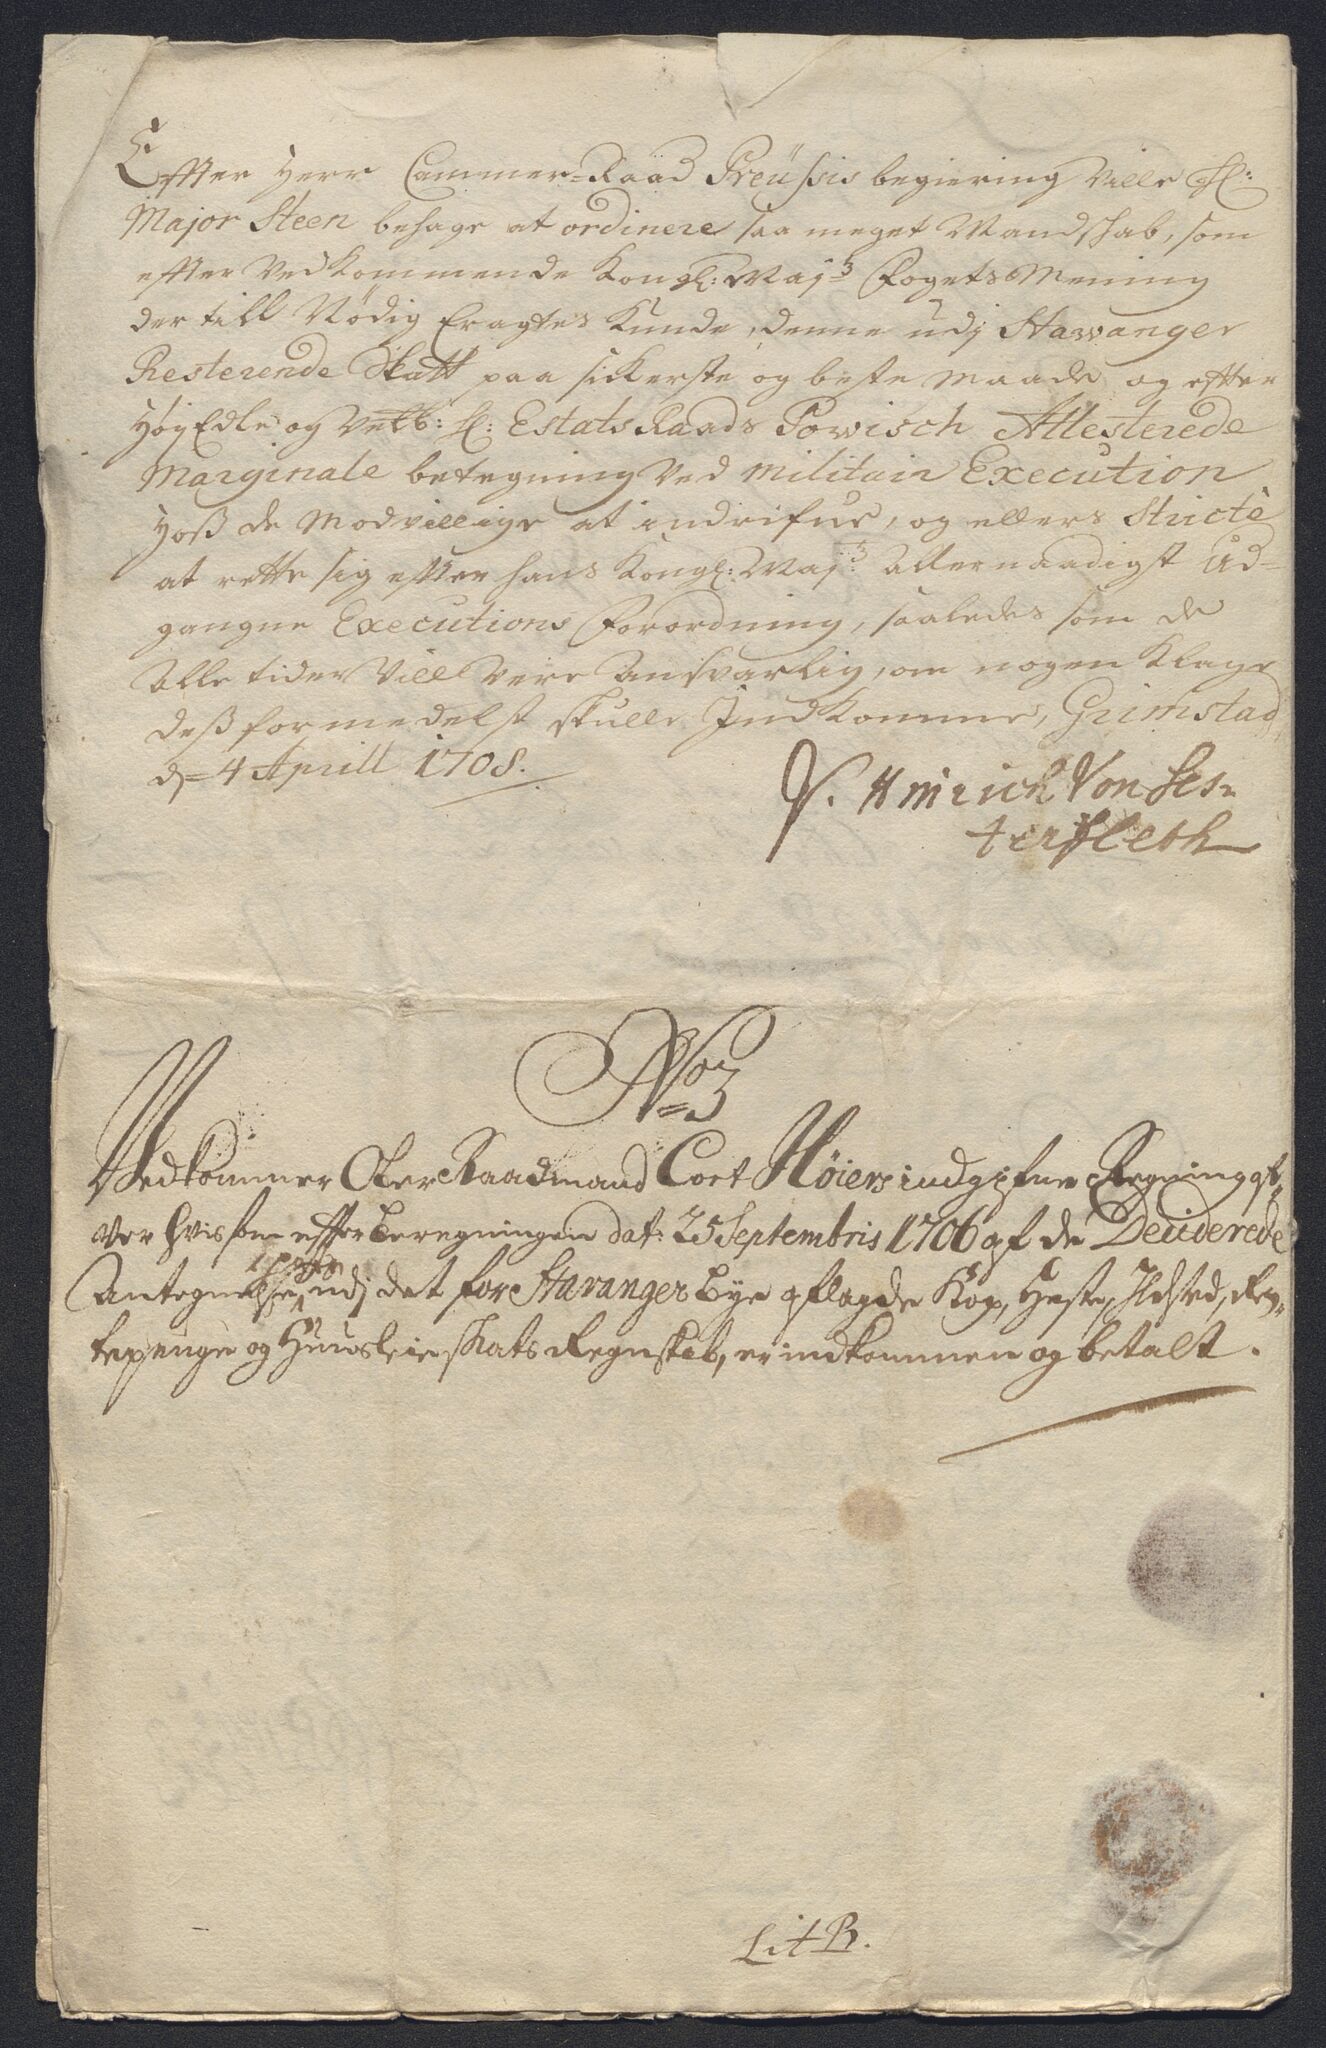 Effter Herr Cammer-Raad Preüssis begiering Ville H:
Major Steen behage at ordinere saa meget Mandskab, som
efter Vedkommende Kongl: May:ᵗˢ Fogets Mening
der till Nödig Eragtes Kunde, denne udj Stawanger
Resterende Skatt paa sickerste og beste maade og efter
HøyEdle og Velb: H: Estats Raads Powisch Attesterede
Marginale betegning Ved Militair Execution
Hoß de Modvillige at indrifue, og ellers Stricte
at rette sig efter hans Kongl: May:ᵗˢ Allernaadigst Ud-
gangne Executions Forordning, saaledes som de
Alle tider Vill Vere Ansvarlig, om nogen Klage
deß formedelst skulle Indkomme, Grimstad
d= 4 Aprill 1708.
V. Hinrich Von Ses-
terfleth
No 3
Vedkommer Ober Raadmand Cort Höiers indgifne Regning
ver hvis som effter beregningen dat: 25 Septembris 1706 af de Deciderede
Antegnelser, udj det for Stavanger Bye aflagde Kop, Heste, Ildsted, Ren-
tepenge og Huusleie skats Regnskab, er indkommen og betalt.
Lit B.